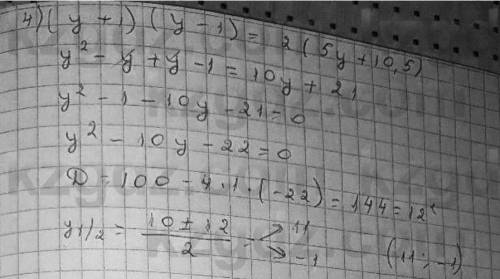 4) (y + 1) (y - 1) = 2 (5y + 10,5)
y² - y + y - 1 = 10y + 21
y² - 1 - 10y - 21 = 0
y² - 10y - 22 = 0
D = 100 - 4 · 1 · (-22) = 144 = 12²
y1/2 = (10 ± 12)/2 = 11
-1 (11; -1)